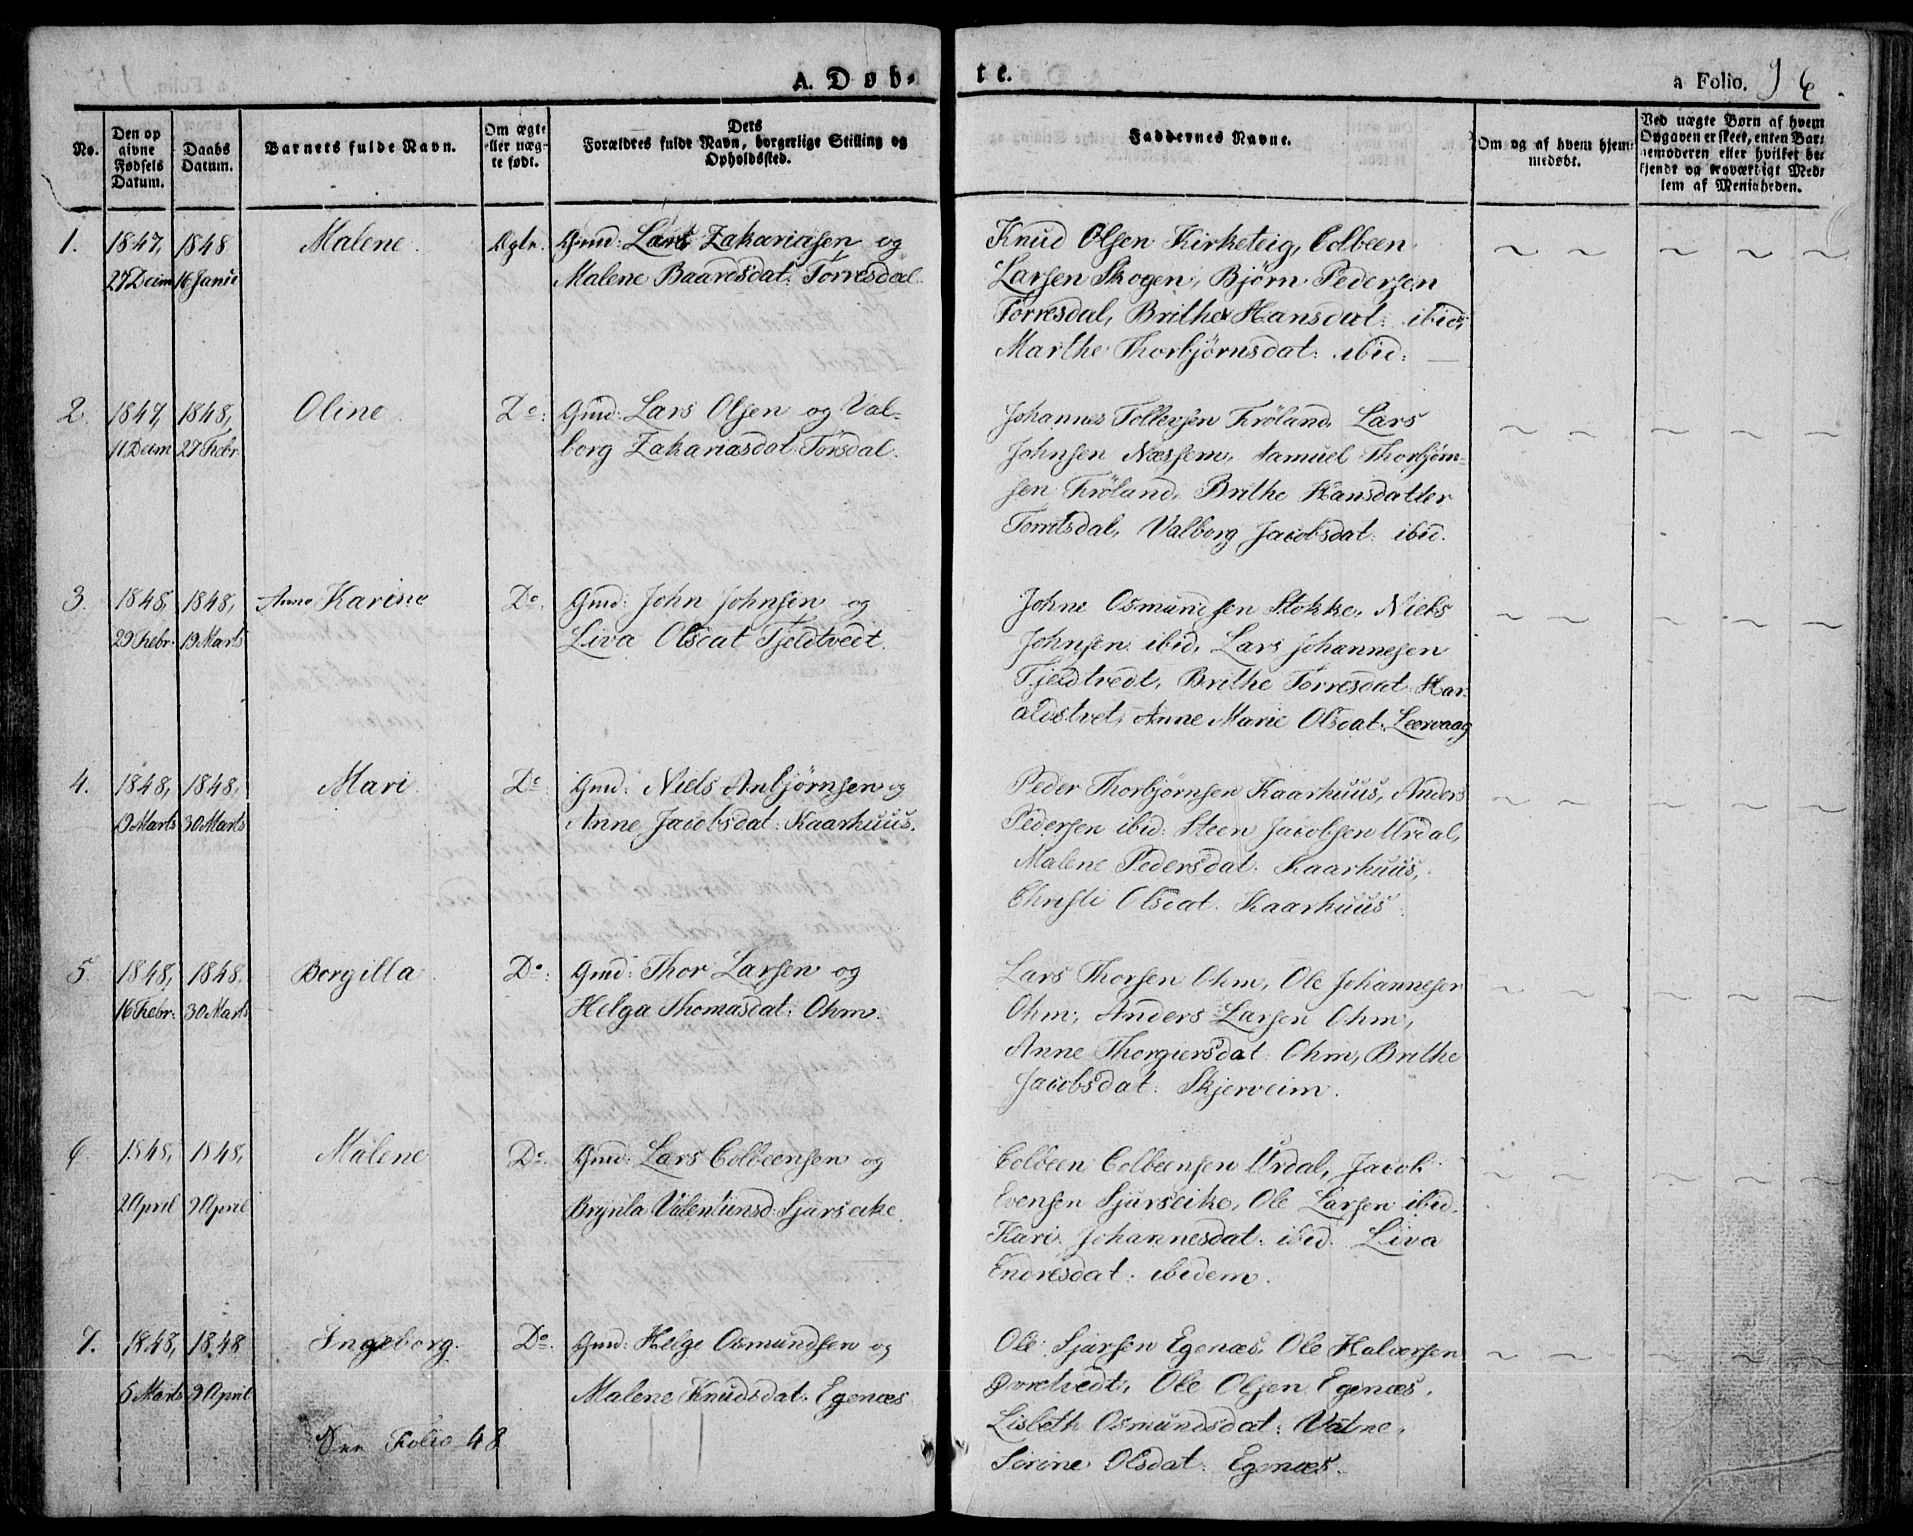 A. Døb-
te.
a Folio. 96.
No.
Den op
givne
Fødsels
Datum.
Daabs
Datum.
Barnets fulde Navn.
Om ægte
eller uæg-
te født.
Dets
Forældres fulde Navn, borgerlige Stilling og
Opholdssted.
Faddernes Navne.
Om og af hvem hjem-
medøbt.
Ved uægte Børn af hvem
Opgaven er skeet, enten Bar-
nemoderen eller hvilket be-
kjendt og troværdigt Med-
lem af Menigheden.
1. 1847, 1848 Malene. Ægte. Gmd: Lars Zakariasen og
27 Decim 16 Janu Malene Baardsdat: Torresdal
Knud Olsen Kirketeig, Colbeen
Larsen Skogen, Bjørn Pedersen
Torresdal, Brithe Hansdat: ibid,
Marthe Thorbjørnsdat: ibid: —
2. 1847, 1848, Oline. Do: Gmd: Lars Olsen og Val-
11 Decim 27 Febr. borg Zakariasdat: Torsdal.
Johannes Tollevsen Frøland, Lars
Johnsen Næssem, Samuel Thorbjørn-
sen Frøland, Brithe Hansdatter
Valborg Jacobsdat: ibid.
3. 1848, 1848, Anne Karine Do: Gmd: John Johnsen og
29 Febr. 19 Marts Liva Olsdat Tjeldtvedt.
Johne Osmundsen Stokke, Niels
Johnsen ibid, Lars Johannesen
Tjeldtvedt, Brithe Torresdat: Har-
aldstvet, Anne Marie Olsdat: Leervaag
4. 1848, 1848, Mari. Do: Gmd: Niels Anbjørnsen og
19 Marts 30 Marts Anne Jacobsdat: Kaarhuus.
Peder Thorbjørnsen Kaarhuus, Anders
Pedersen ibid: Steen Jacobsen Urdal,
Malene Pedersdat: Kaarhuus,
Christi Olsdat: Kaarhuus.
5. 1848, 1848. Borgilla Do: Gmd: Thor Larsen og
16 Febr: 30 Marts Helga Thomasdat: Ohm.
Lars Thorsen Ohm, Ole Johannesen
Ohm, Anders Larsen Ohm,
Anne Thorgiersdat: Ohm, Brithe
Jacobsdat: Skjerveim.
6. 1848, 1848, Malene Do: Gmd: Lars Colbeensen og
2 April 9 April Brynla Valentinsd: Sjurseike.
Colbeen Colbeensen Urdal, Jacob
Evensen Sjurseike, Ole Larsen ibid.
Kari Johannesdat: ibid. Liva
Endresdat: ibidem.
7. 1848, 1848 Ingeborg. Do: Gmd: Helge Osmundsen og
5 Marts 9 April Malene Knudsdat: Egenæs
Ole Sjursen Egenæs, Ole Halvorsen
Øvretvedt, Ole Olsen Egenæs,
Lisbeth Osmundsdat: Vatne,
Sørine Olsdat: Egenæs.
Folio 48